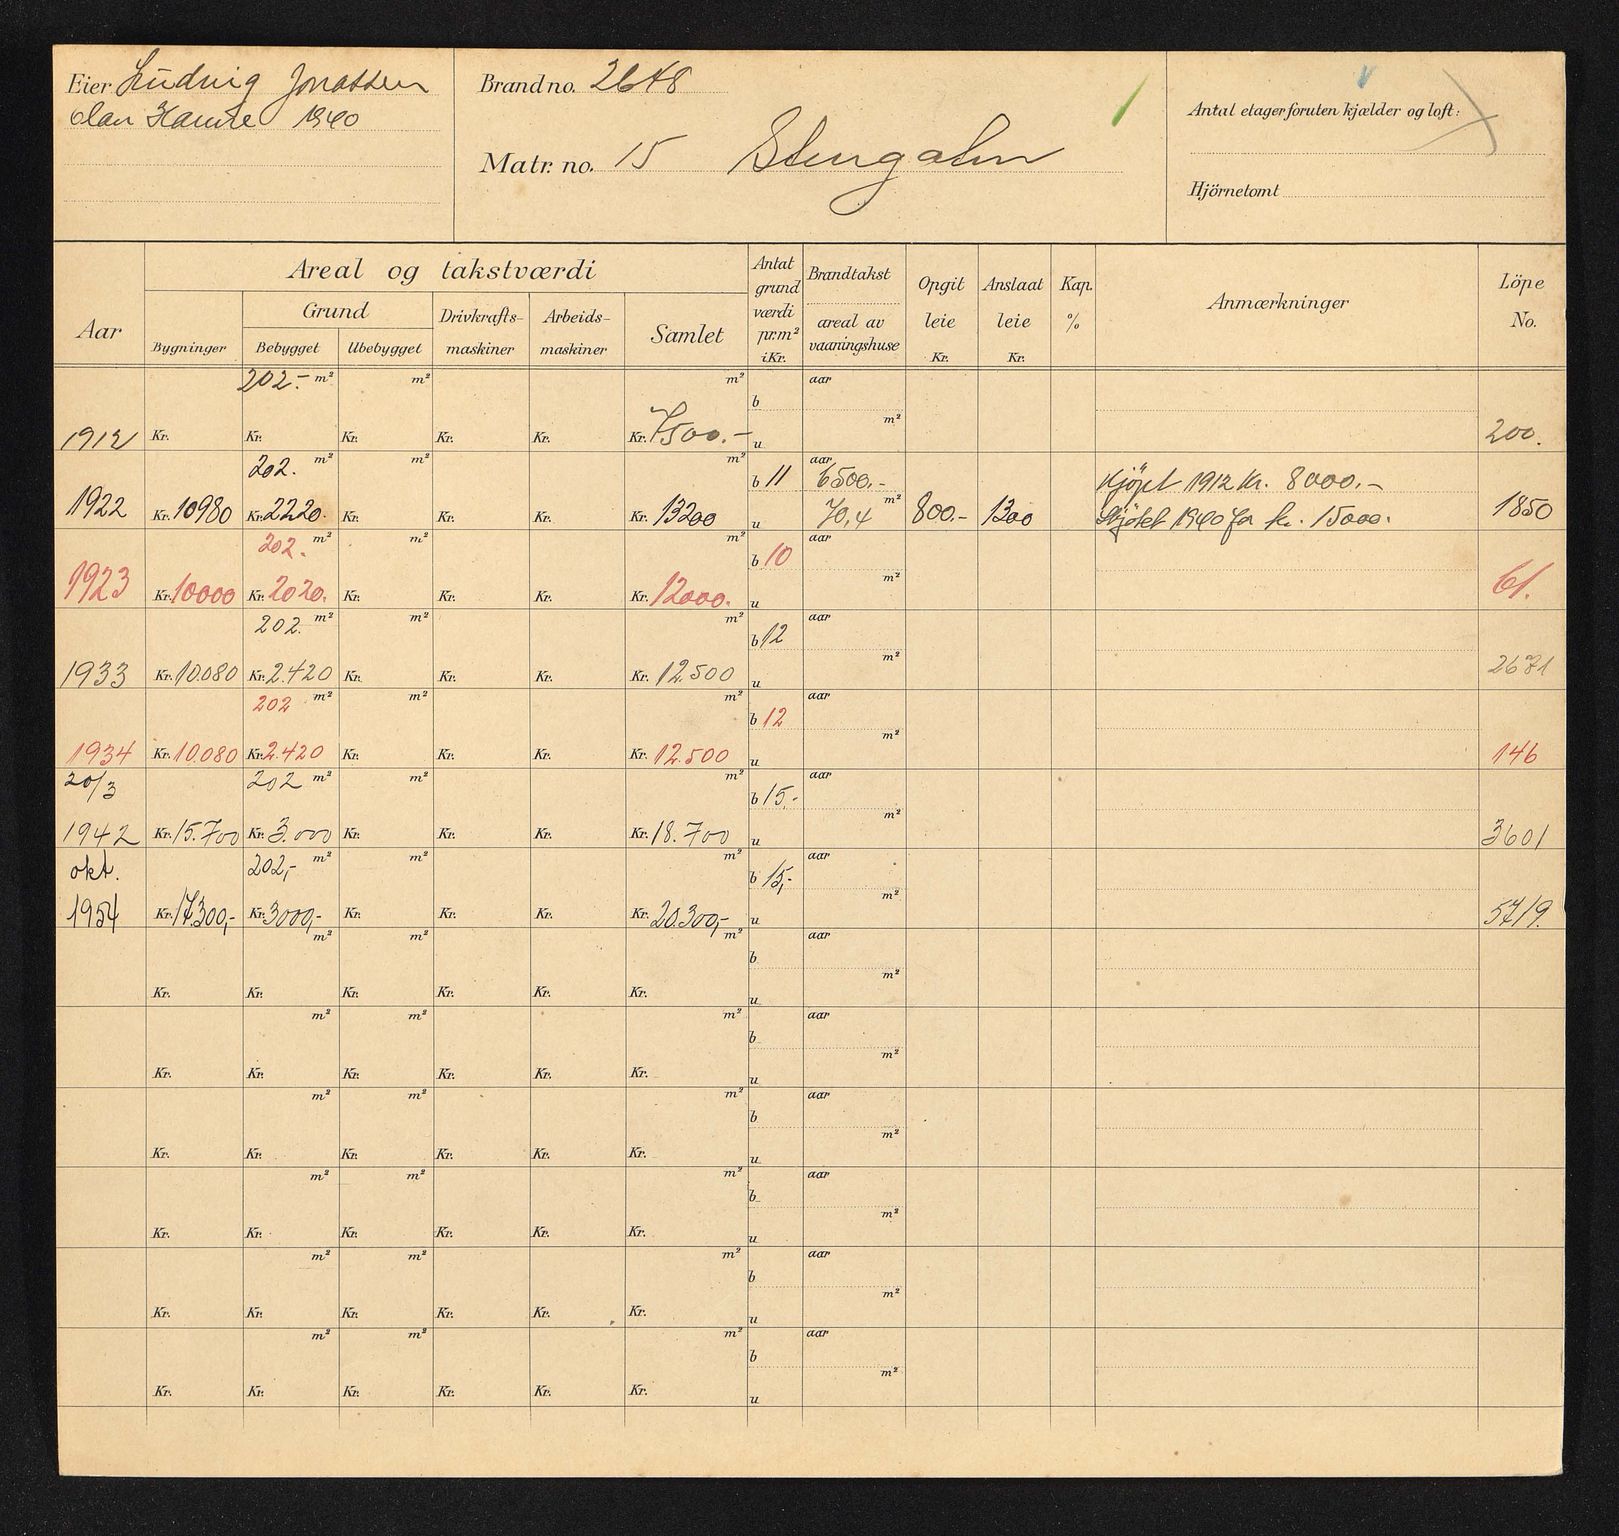 Eier Ludvig Jonassen
Olav Hamre 1940
Brand no. 2648
Matr. no. 15 Stengaten
Antal etager foruten kjælder og loft:
Hjörnetomt
Aar
Areal og takstværdi
Bygninger
Grund
Bebygget Ubebygget
Drivkrafts-
maskiner
Arbeids-
maskiner
Samlet
Antat
grund
værdi
pr.m²
i Kr.
Brandtakst
areal av
vaaningshuse
Opgit
leie
Kr.
Anslaat
leie
Kr.
Kap.
%
Anmærkninger
Löpe
No.
202.- m² m² m² aar
b
m²
1912 Kr. Kr. Kr. Kr. Kr. Kr. 7500.- u 200.
202. m² m² m² b 11 aar 6500.- Kjöpt 1912 Kr. 8000.-
1922 Kr. 10980 Kr. 2220. Kr. Kr. Kr. Kr. 13200 u 70,4 m² 800.- 1300 Skjötet 1940 for kr. 15000. 1850
202. m² m² m² b 10 aar
m²
1923 Kr. 10000 Kr. 2020. Kr. Kr. Kr. Kr. 12000. u 61.
202. m² m² m² b 12 aar
m²
1933 Kr. 10.080 Kr. 2.420 Kr. Kr. Kr. Kr. 12.500 u 2671
202 m² m² m² b 12 aar
m²
1934 Kr. 10.080 Kr. 2.420 Kr. Kr. Kr. Kr. 12.500 u 146
20/3 202 m² m² m² b 15.- aar
m²
1942 Kr. 15.700 Kr. 3.000 Kr. Kr. Kr. Kr. 18.700 u 3601
okt. 202,- m² m² m² b 15,- aar
m²
1954 Kr. 17.300,- Kr. 3000,- Kr. Kr. Kr. Kr. 20.300,- u 5719.
m² m² m² aar
b
m²
Kr. Kr. Kr. Kr. Kr. Kr. u
m² m² m² aar
b
m²
Kr. Kr. Kr. Kr. Kr. Kr. u
m² m² m² aar
b
m²
Kr. Kr. Kr. Kr. Kr. Kr. u
m² m² m² aar
b
m²
Kr. Kr. Kr. Kr. Kr. Kr. u
m² m² m² aar
b
m²
Kr. Kr. Kr. Kr. Kr. Kr. u
m² m² m² aar
b
m²
Kr. Kr. Kr. Kr. Kr. Kr. u